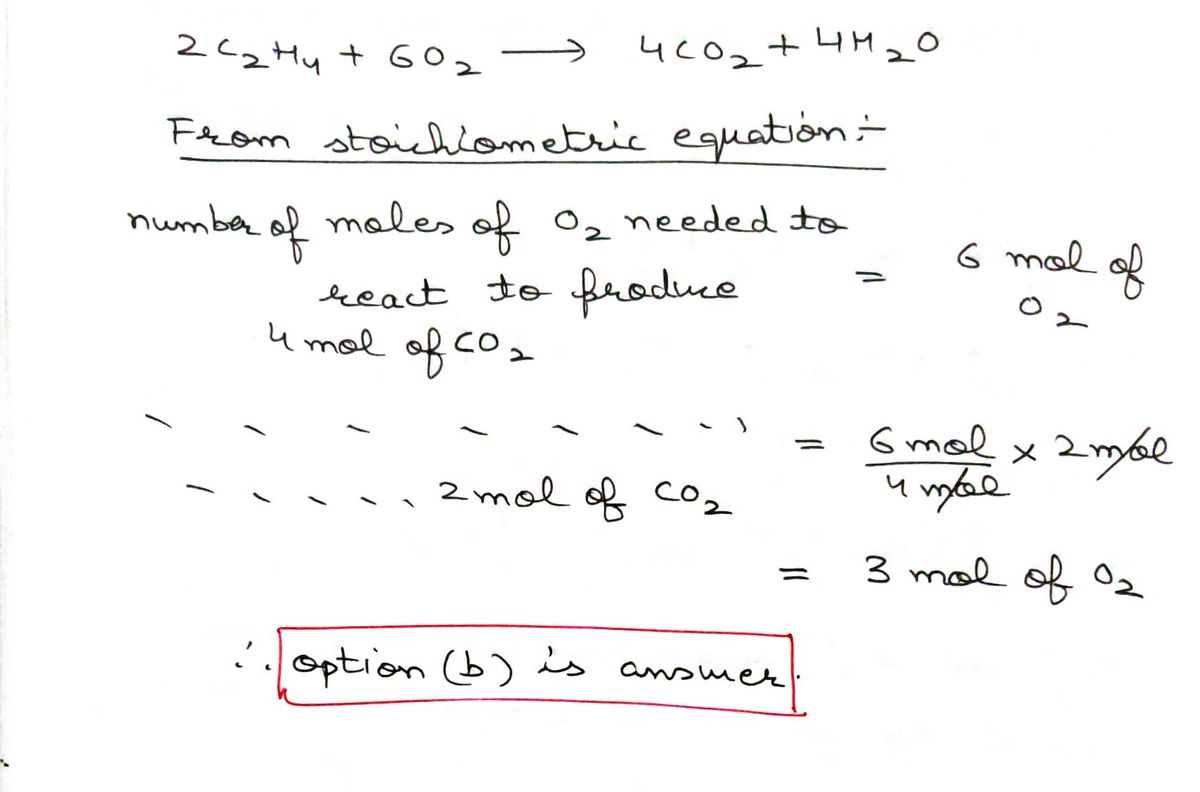 2C₂H₄ + 6O₂ ⟶ 4CO₂ + 4H₂O
From stoichiometric equation :-
number of moles of O₂ needed to react to produce 4 mol of CO₂ = 6 mol of O₂
2 mol of CO₂ = 6 mol / 4 mol × 2 mol
= 3 mol of O₂
∴ option (b) is answer.